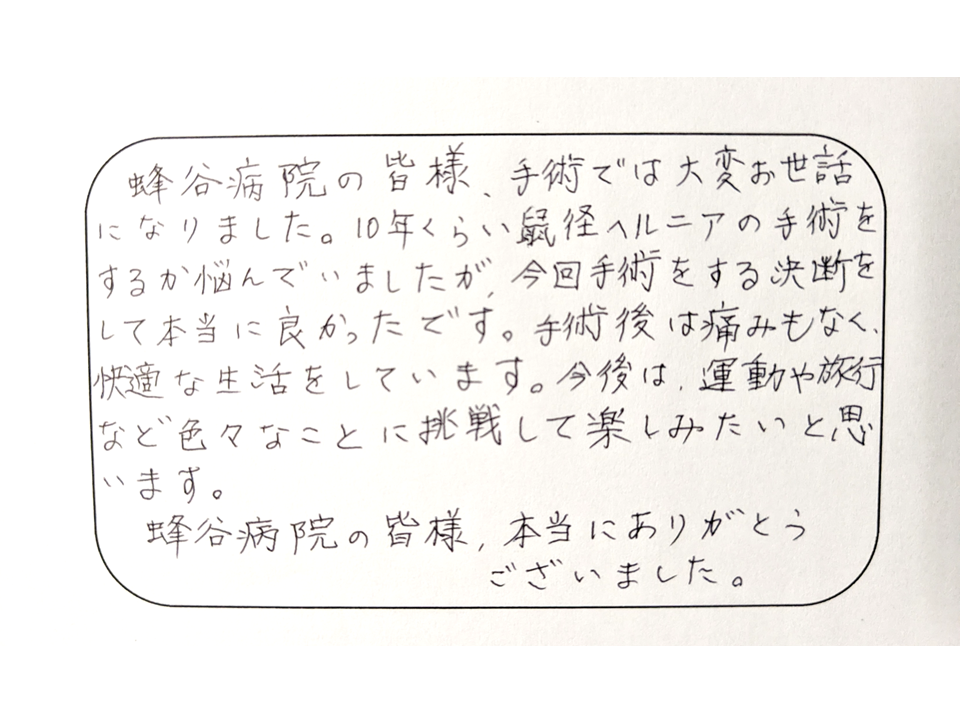 蜂谷病院の皆様、手術では大変お世話
になりました。10年くらい鼠径ヘルニアの手術を
するか悩んでいましたが、今回手術をする決断を
して本当に良かったです。手術後は痛みもなく、
快適な生活をしています。今後は、運動や旅行
など色々なことに挑戦して楽しみたいと思
います。
蜂谷病院の皆様、本当にありがとう
ございました。